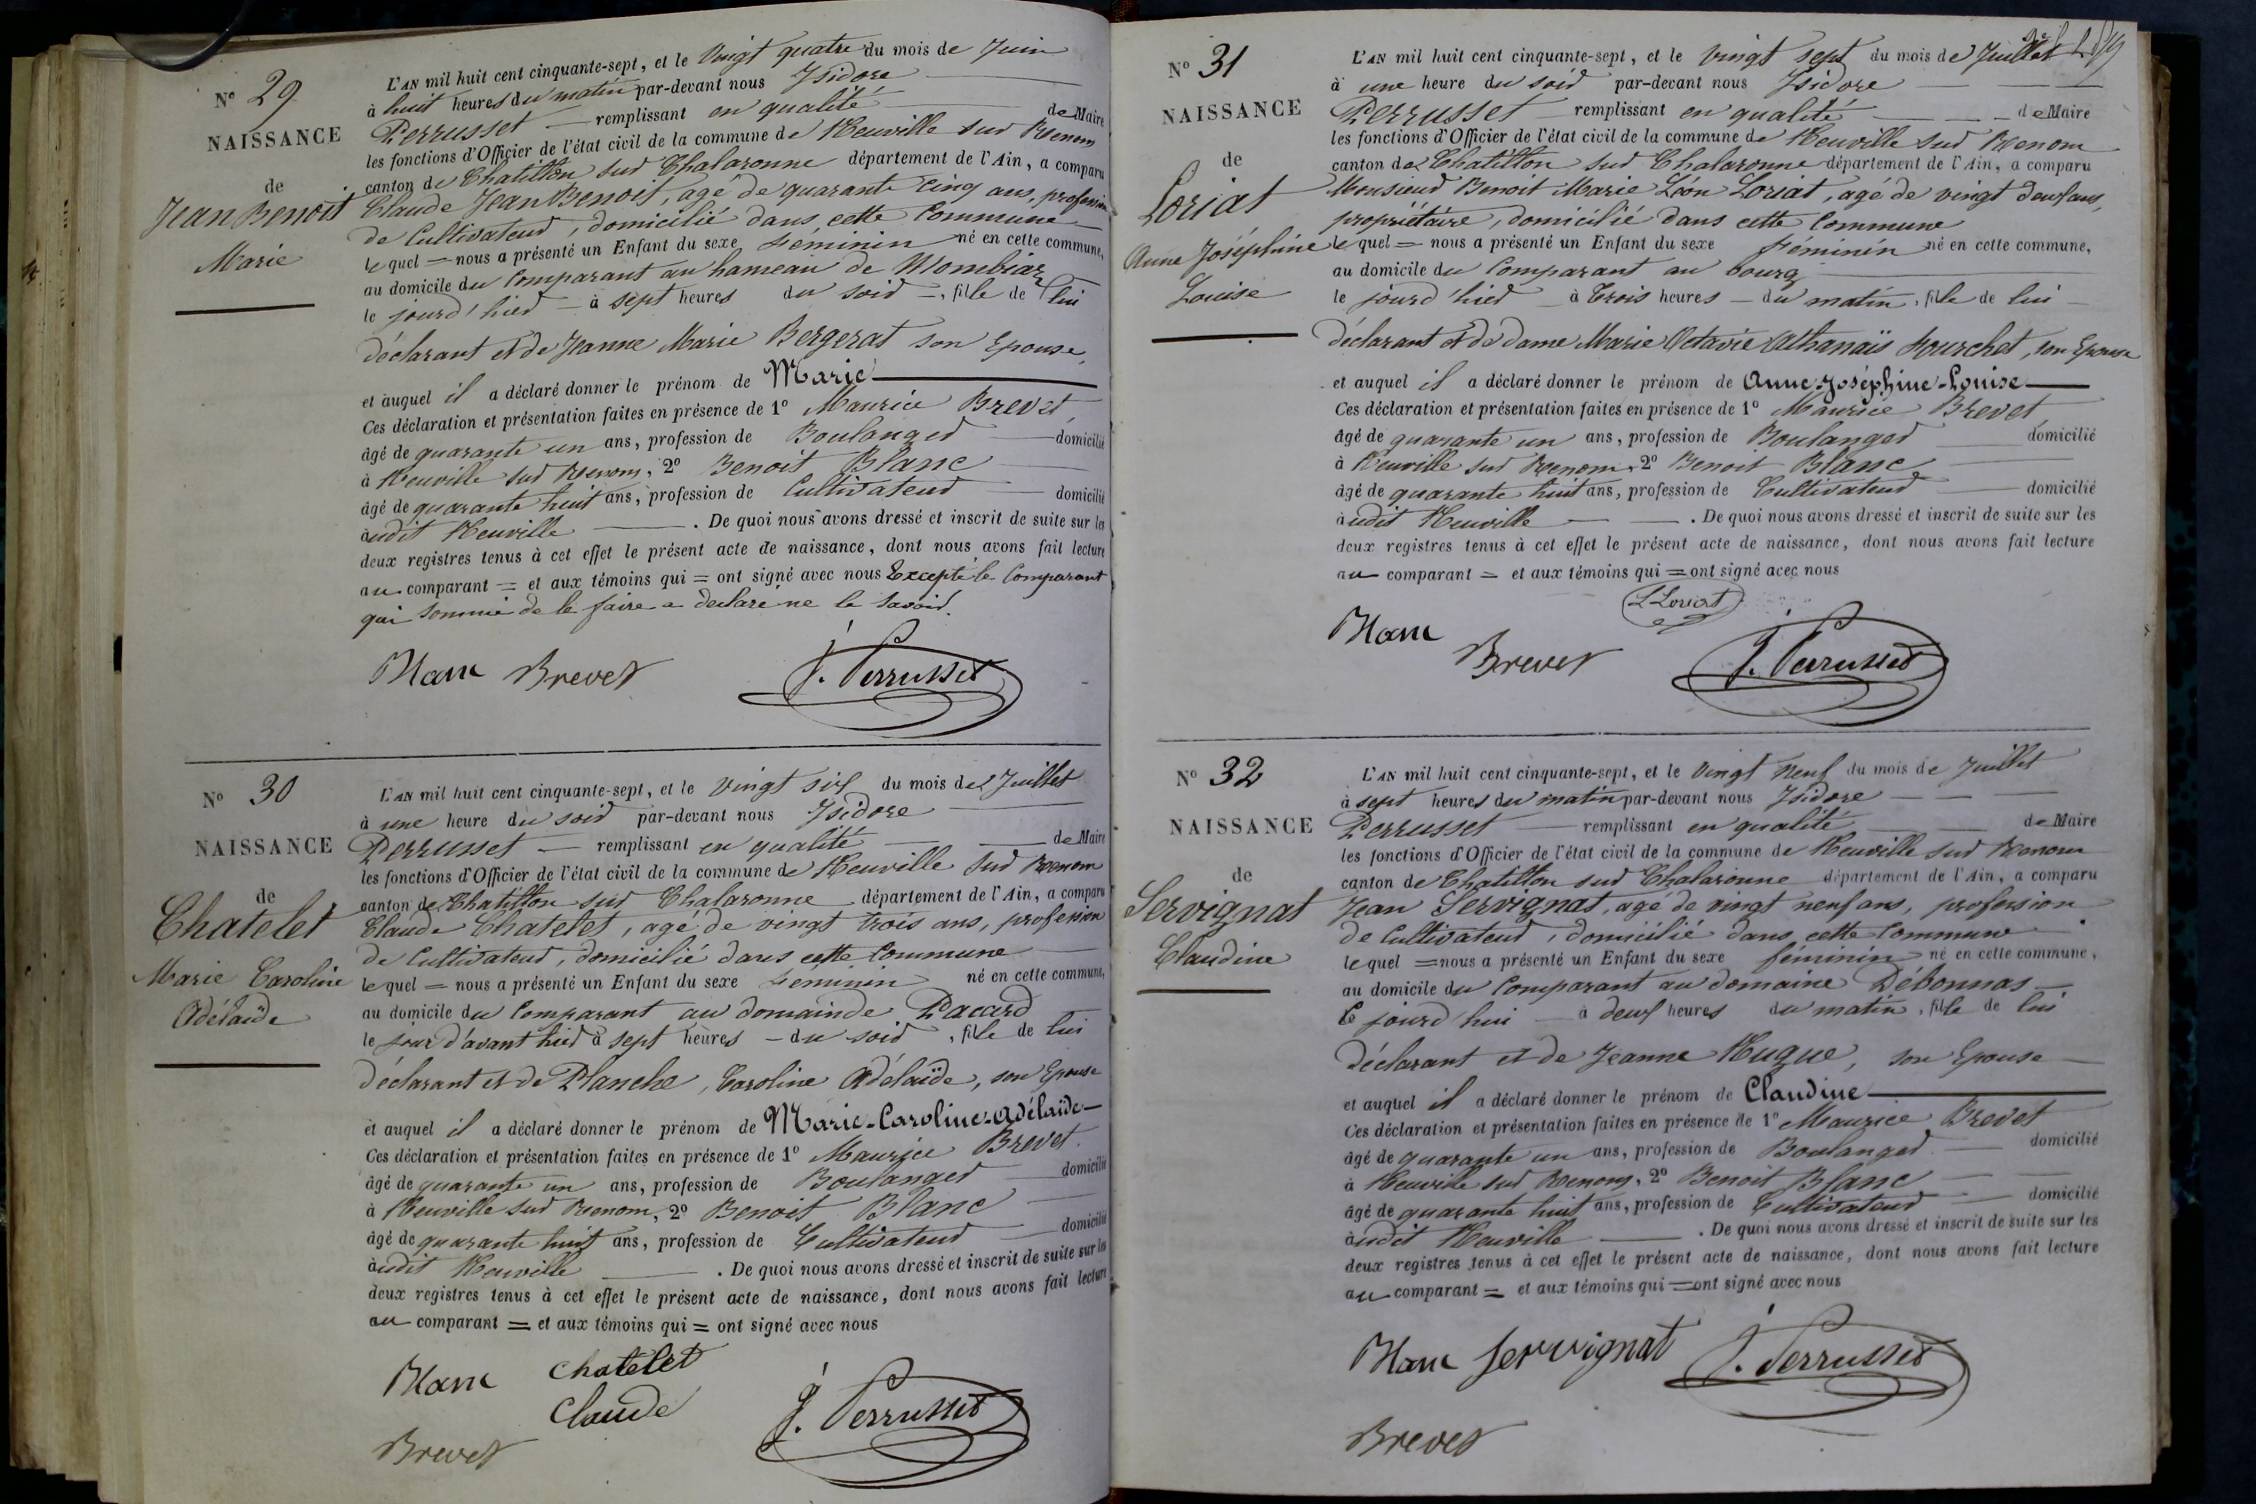 N° 29
NAISSANCE
de
Jean Benoit
Marie
L'AN mil huit cent cinquante-sept, et le vingt quatre du mois de Juin
à huit heures du matin par-devant nous Isidore
Perrusset remplissant en qualité de Maire
les fonctions d'Officier de l'état civil de la commune de Neuville sur Renom
canton de Chatillon sur Chalaronne département de l'Ain, a comparu
Claude Jean Benoit, agé de quarante cinq ans, profession
de Cultivateur, domicilié dans cette Commune
lequel = nous a présenté un Enfant du sexe féminin né en cette commune,
au domicile du Comparant au hameau de Mombiaz
le jourd'hier à sept heures du soir, fille de lui
déclarant et de Jeanne Marie Bergerat son Epouse,
et auquel il a déclaré donner le prénom de Marie
Ces déclaration et présentation faites en présence de 1° Maurice Brevet
âgé de quarante un ans, profession de Boulanger domicilié
à Neuville sur Renom, 2° Benoit Blanc
âgé de quarante huit ans, profession de Cultivateur domicilié
audit Neuville . De quoi nous avons dressé et inscrit de suite sur les
deux registres tenus à cet effet le présent acte de naissance, dont nous avons fait lecture
au comparant = et aux témoins qui = ont signé avec nous Excepté le Comparant
qui sommé de le faire a déclaré ne le savoir.
Blanc Brevet J. Perrusset
N° 30
NAISSANCE
de
Chatelet
Marie Caroline
Adélaïde
L'AN mil huit cent cinquante-sept, et le vingt six du mois de Juillet
à une heure du soir par-devant nous Isidore
Perrusset remplissant en qualité de Maire
les fonctions d'Officier de l'état civil de la commune de Neuville sur Renom
canton de Chatillon sur Chalaronne département de l'Ain, a comparu
Claude Chatelet, agé de vingt trois ans, profession
de Cultivateur, domicilié dans cette Commune
lequel = nous a présenté un Enfant du sexe féminin né en cette commune,
au domicile du Comparant au domaine Pacard
le jour d'avant hier à sept heures du soir, fille de lui
déclarant et de Planche, Caroline Adélaïde, son Epouse
et auquel il a déclaré donner le prénom de Marie-Caroline-Adélaïde
Ces déclaration et présentation faites en présence de 1° Maurice Brevet.
âgé de quarante un ans, profession de Boulanger domicilié
à Neuville sur Renom, 2° Benoit Blanc
âgé de quarante huit ans, profession de Cultivateur domicilié
audit Neuville . De quoi nous avons dressé et inscrit de suite sur les
deux registres tenus à cet effet le présent acte de naissance, dont nous avons fait lecture
au comparant = et aux témoins qui = ont signé avec nous
Blanc Chatelet
Claude J. Perrusset
Brevet
N° 31
NAISSANCE
de
Loriat
Anne Joséphine
Louise
L'AN mil huit cent cinquante-sept, et le vingt sept du mois de Juillet
à une heure du soir par-devant nous Isidore
Perrusset remplissant en qualité de Maire
les fonctions d'Officier de l'état civil de la commune de Neuville sur Renom
canton de Chatillon sur Chalaronne département de l'Ain, a comparu
Monsieur Benoit Marie Léon Loriat, agé de vingt deux ans,
propriétaire, domicilié dans cette Commune
lequel = nous a présenté un Enfant du sexe féminin né en cette commune,
au domicile du Comparant au bourg
le jourd'hier à trois heures du matin, fille de lui
déclarant et de dame Marie Octavie Athanaïs Fourchet, son Epouse
et auquel il a déclaré donner le prénom de Anne-Joséphine-Louise
Ces déclaration et présentation faites en présence de 1° Maurice Brevet
âgé de quarante un ans, profession de Boulanger domicilié
à Neuville sur Renom, 2° Benoit Blanc
âgé de quarante huit ans, profession de Cultivateur domicilié
audit Neuville . De quoi nous avons dressé et inscrit de suite sur les
deux registres tenus à cet effet le présent acte de naissance, dont nous avons fait lecture
au comparant = et aux témoins qui = ont signé avec nous
L Loriat
Blanc
Brevet J. Perrusset
N° 32
NAISSANCE
de
Servignat
Claudine
L'AN mil huit cent cinquante-sept, et le vingt neuf du mois de Juillet
à sept heures du matin par-devant nous Isidore
Perrusset remplissant en qualité de Maire
les fonctions d'Officier de l'état civil de la commune de Neuville sur Renom
canton de Chatillon sur Chalaronne département de l'Ain, a comparu
Jean Servignat, agé de vingt neuf ans, profession
de Cultivateur, domicilié dans cette Commune
lequel = nous a présenté un Enfant du sexe féminin né en cette commune,
au domicile du Comparant au domaine Débonnas
le jourd'hui à deux heures du matin, fille de lui
déclarant et de Jeanne Hugue, son Epouse
et auquel il a déclaré donner le prénom de Claudine
Ces déclaration et présentation faites en présence de 1° Maurice Brevet
âgé de quarante un ans, profession de Boulanger domicilié
à Neuville sur Renom, 2° Benoit Blanc
âgé de quarante huit ans, profession de Cultivateur domicilié
audit Neuville . De quoi nous avons dressé et inscrit de suite sur les
deux registres tenus à cet effet le présent acte de naissance, dont nous avons fait lecture
au comparant = et aux témoins qui = ont signé avec nous
Blanc Servignat J. Perrusset
Brevet